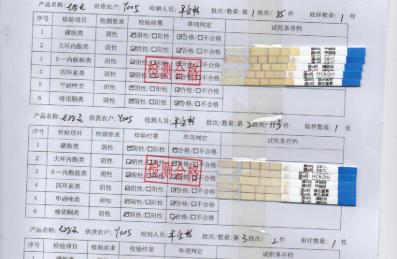 产品名称: 供货农户: Y005 检测人员: 批次/数量:第1批次/ 件 取样数量: 1 枚
序号 检验项目 检测要求 检验结果 单项判定 试纸条存档
1 磺胺类 阴性 ☑阴性/☐阳性 ☑合格/☐不合格
2 大环内酯类 阴性 ☑阴性/☐阳性 ☑合格/☐不合格
3 β-内酰胺类 阴性 ☑阴性/☐阳性 ☑合格/☐不合格
4 四环素类 阴性 ☑阴性/☐阳性 ☑合格/☐不合格
5 甲硝唑类 阴性 ☑阴性/☐阳性 ☑合格/☐不合格
6 喹诺酮类 阴性 ☑阴性/☐阳性 ☑合格/☐不合格
检测合格
产品名称: 供货农户: Y005 检测人员: 批次/数量:第2批次/ 件 取样数量: 1 枚
序号 检验项目 检测要求 检验结果 单项判定 试纸条存档
1 磺胺类 阴性 ☑阴性/☐阳性 ☑合格/☐不合格
2 大环内酯类 阴性 ☑阴性/☐阳性 ☑合格/☐不合格
3 β-内酰胺类 阴性 ☑阴性/☐阳性 ☑合格/☐不合格
4 四环素类 阴性 ☑阴性/☐阳性 ☑合格/☐不合格
5 甲硝唑 阴性 ☑阴性/☐阳性 ☑合格/☐不合格
6 喹诺酮类 阴性 ☑阴性/☐阳性 ☑合格/☐不合格
检测合格
产品名称: 供货农户: Y005 检测人员: 批次/数量:第3批次/ 2件 取样数量: 1 枚
序号 检验项目 检测要求 检验结果 单项判定 试纸条存档